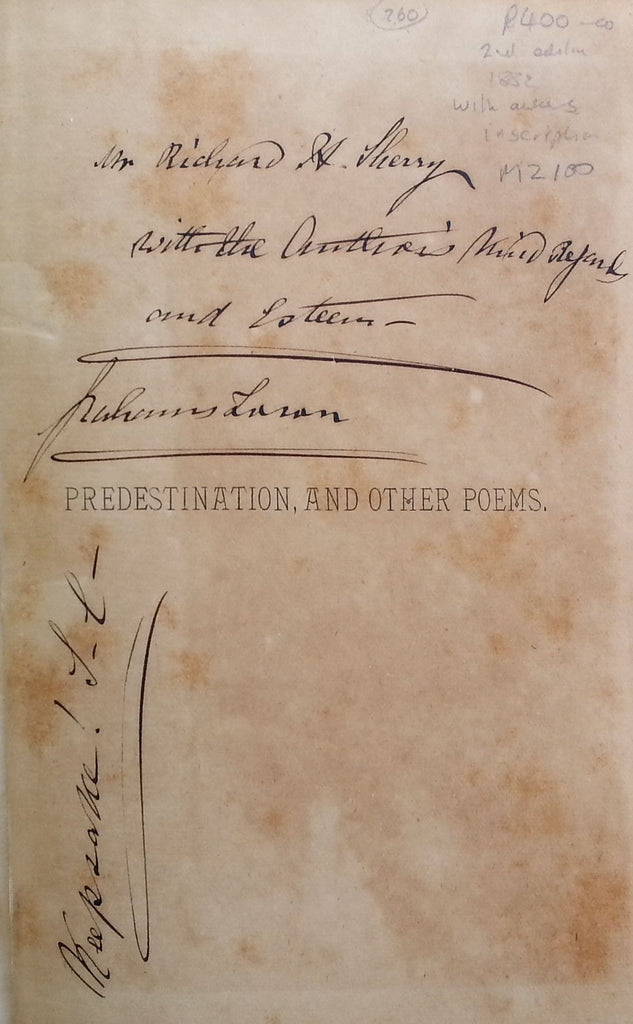 260
R400-00
2nd edition
1882
with authors
inscription
M2100
Mr Richard H. Sherry
with the Author's Kind Regards
and Esteem—
Grahams
PREDESTINATION, AND OTHER POEMS.
Keepsake!